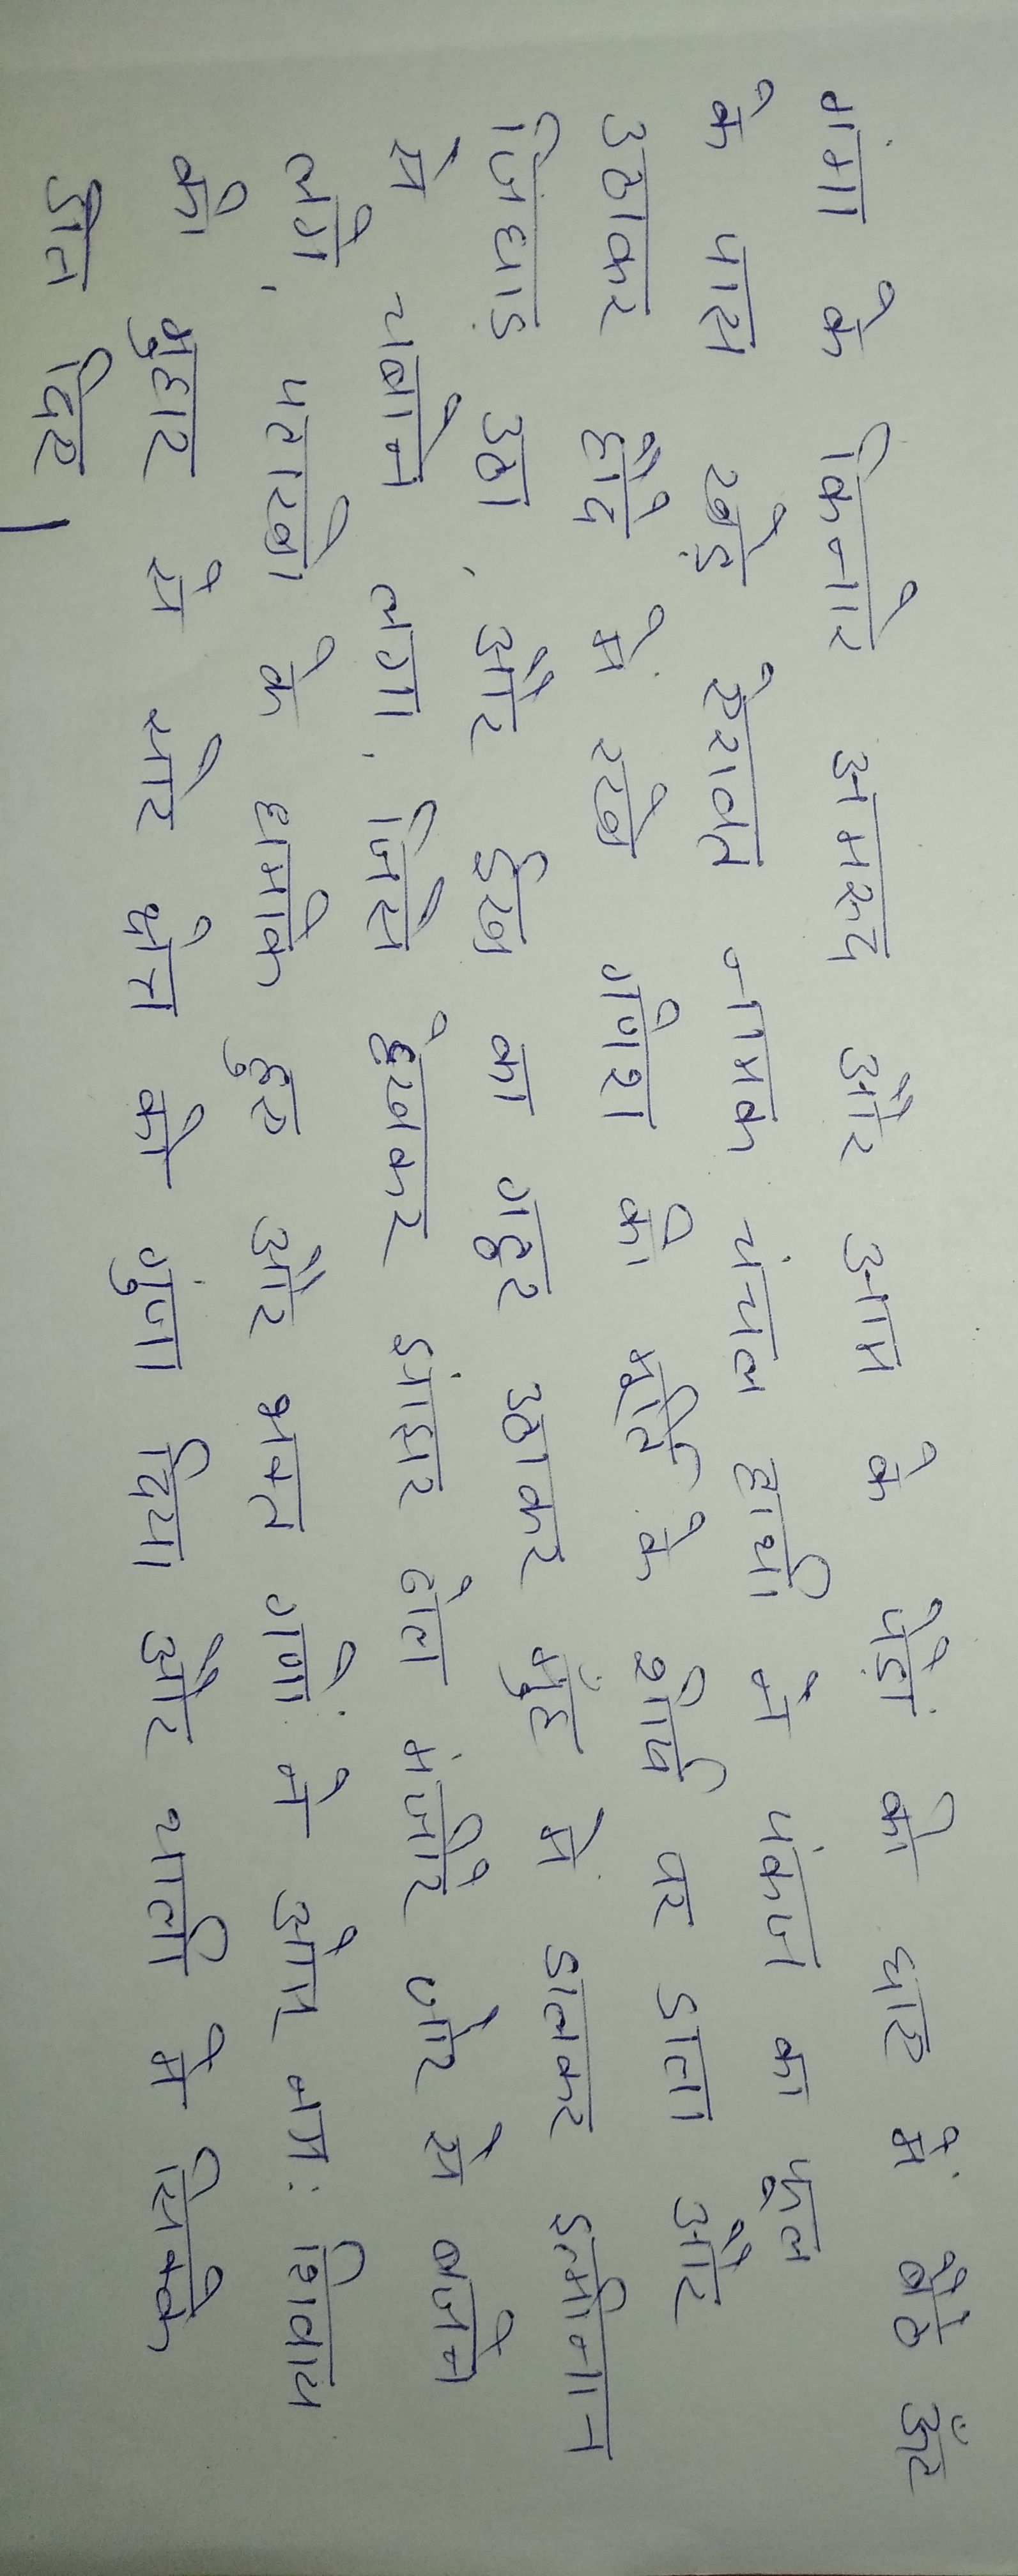 गंगा के किनारे अमरुद और आम के पेड़ों की छाए में बैठे ऊँट
के पास खड़े ऐरावत नामक चंचल हाथी ने पंकज का फूल
उठाकर हौदे में रखे गणेश की मूर्ति के शीर्ष पर डाला और
जिंघाड़ उठा, और ईख का गट्ठर उठाकर मुँह में डालकर इत्मीनान
से चबाने लगा, जिसे देखकर झांझर ढोल मंजीरे जोर से बजने
लगे, पटाखो के धमाके हुए और भक्त गणों ने ओम् नम: शिवाय
की गुहार से सारे क्षेत्र को गुंजा दिया और थाली मे सिक्के
डाल दिए।